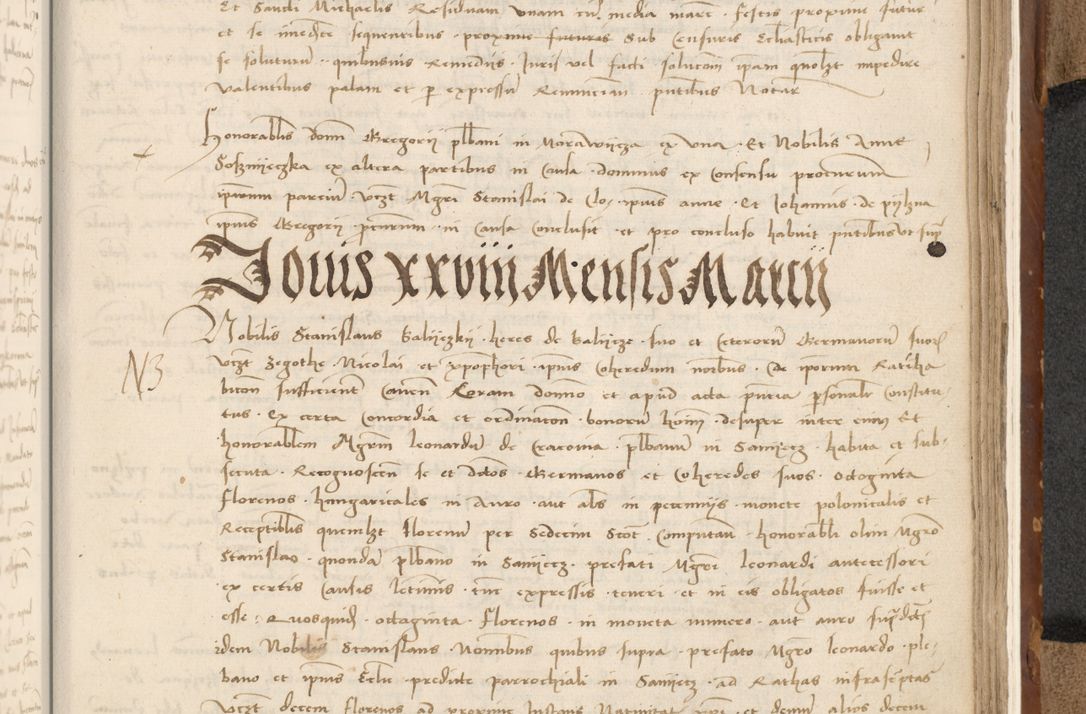 Et Sancti Michaelis Residuam vnam cu media marc festis proxime futur
et se imediate sequentibus proxime futuras Sub Censuris Ecclasticis obligauit
se soluturum quibusuis Remediis Iuris vel facti solucom ipam quolzt impedire
valentibus palam et p expressum Renuncian pntibus Notar
Honorablis domi Gregorii plbani in Morawycza ex vna Et Nobilis Anne
ex altera partibus in Causa dominus ex Consensu procuratorum
iparum parcium vczt Mgri Stanislai de ipius anne Et Iohannis de pylzna
ipius Gregorii pcuratorum in Causa Conclusit et pro concluso habuit pntibus vt sup
Iouis xxviii Mensis Marcii
Nobilis Stanislaus Galyczkii heres de Galycze suo et Ceterorum Germanorum suorum
N3
vczt Zegothe Nicolai et xpophori ipius Coheredum noibus de iporum Rathiha
bicon sufficienter Cauen Coram domno et apud acta pntia psonaliter Constitu
tus Ex certa Concordia et ordinacon bonorum hoinum desuper inter eum Et
honorablem Mgrm leonardum de Cracouia plbanum in Samyecz habita et sub
secuta Recognoscen se et dictos Germanos et Coheredes suos octoginta
florenos hungaricales in Auro aut als in peccuniis monete polonicalis et
Receptiblis quemlzt florenum per Sedecim Scot Computan honorabli olim Mgro
Stanislao quondam plbano in Samyecz prefati Mgri leonardi antecessori
ex certis Causis letimis tunc expressis teneri et in eis obligatos fuisse et
esse Quosquidem octoginta florenos in moneta numero aut auro suprdict
idem Nobilis Stanislaus Nominibus quibus supra prefato Mgro leonardo ple
bano et ipius Eclie predicte parrochiali in Samyecz ad Rathas infrascptas
vczt decem florenos ad proxime Instans Natiuitat xpi et demum alios decem